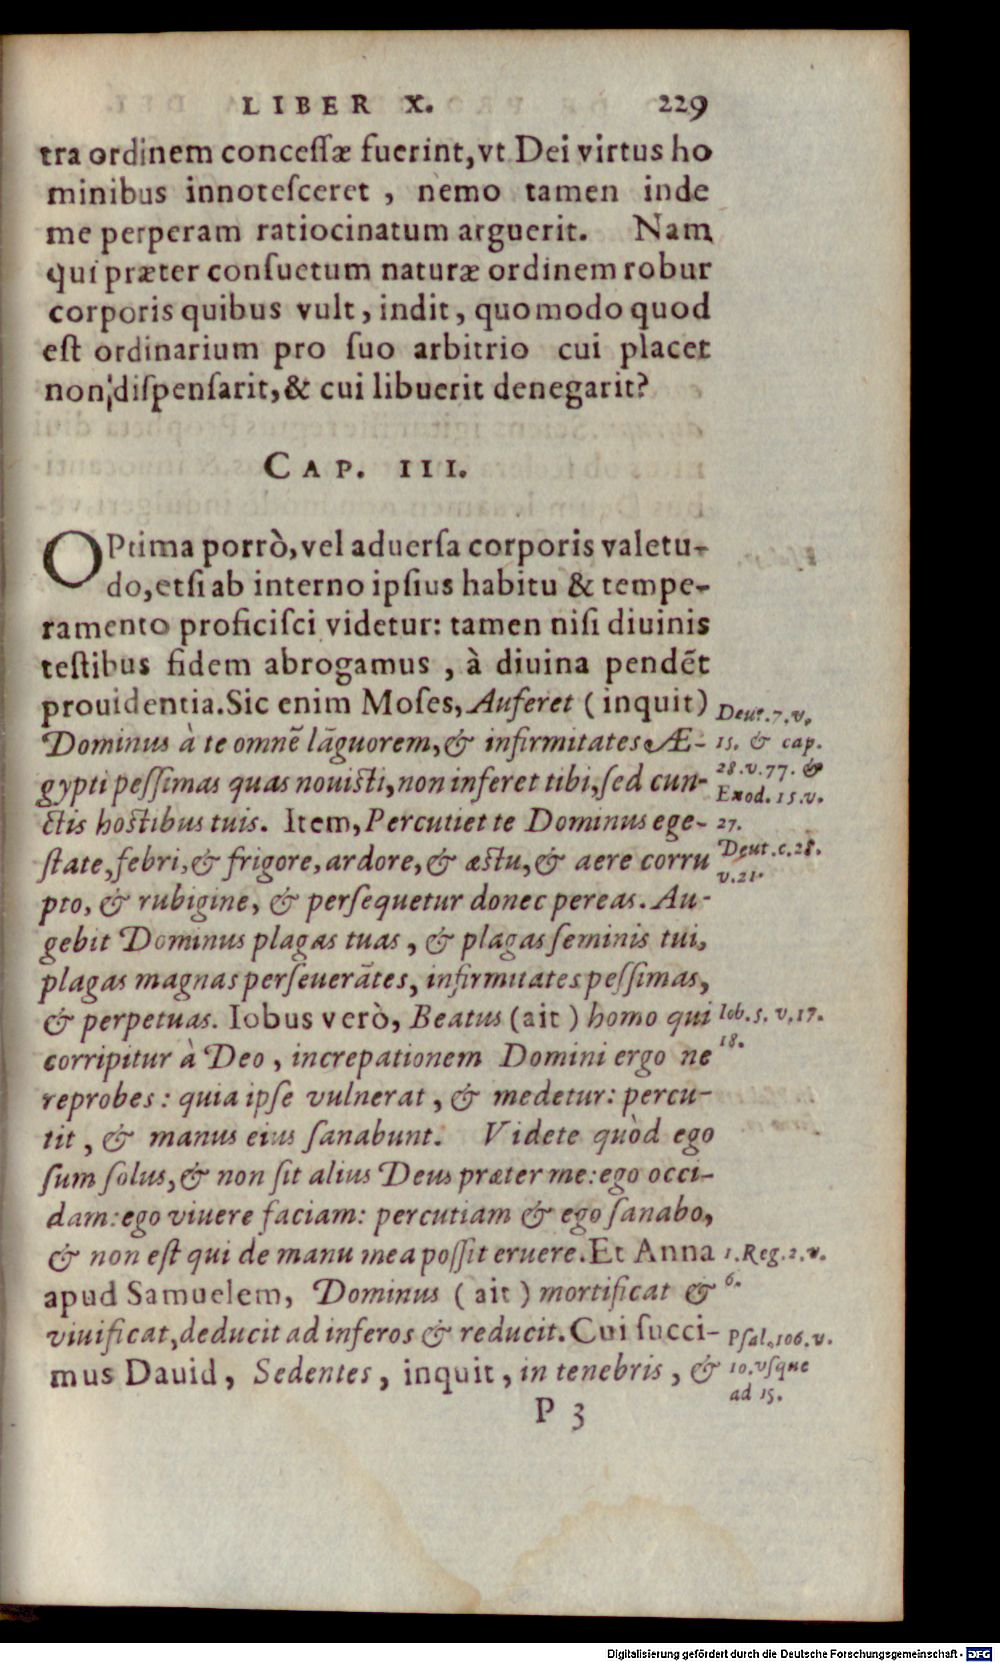 LIBER X. 229
tra ordinem conceſſæ fuerint, vt Dei virtus ho
minibus innoteſceret, nemo tamen inde
me perperam ratiocinatum arguerit. Nam
qui præter conſuetum naturæ ordinem robur
corporis quibus vult, indit, quomodo quod
eſt ordinarium pro ſuo arbitrio cui placet
non diſpenſarit, & cui libuerit denegarit?
CAP. III.
OPtima porrò, vel aduerſa corporis valetu-
do, etſi ab interno ipſius habitu & tempe-
ramento proficiſci videtur: tamen niſi diuinis
teſtibus fidem abrogamus, à diuina pendẽt
prouidentia. Sic enim Moſes, Auferet (inquit)
Dominus à te omnẽ lãguorem, & infirmitates Æ-
gypti peſſimas quas nouiſti, non inferet tibi, ſed cun-
ctis hoſtibus tuis. Item, Percutiet te Dominus ege-
ſtate, febri, & frigore, ardore, & æſtu, & aere corru
pto, & rubigine, & perſequetur donec pereas. Au-
gebit Dominus plagas tuas, & plagas ſeminis tui,
plagas magnas perſeuerãtes, infirmitates peſſimas,
& perpetuas. Iobus verò, Beatus (ait) homo qui
corripitur à Deo, increpationem Domini ergo ne
reprobes: quia ipſe vulnerat, & medetur: percu-
tit, & manus eius ſanabunt. Videte quòd ego
ſum ſolus, & non ſit alius Deus præter me: ego occi-
dam: ego viuere faciam: percutiam & ego ſanabo,
& non eſt qui de manu mea poſſit eruere. Et Anna
apud Samuelem, Dominus (ait) mortificat &
viuificat, deducit ad inferos & reducit. Cui ſucci-
mus Dauid, Sedentes, inquit, in tenebris, &
P 3
Deut. 7. v.
15. & cap.
28. v. 77. &
Exod. 15. v.
27.
Deut. c. 28.
v. 21.
Iob. 5. v. 17.
18.
1. Reg. 2. v.
6.
Pſal. 106. v.
10. vſque
ad 15.
Digitalisierung gefördert durch die Deutsche Forschungsgemeinschaft - DFG